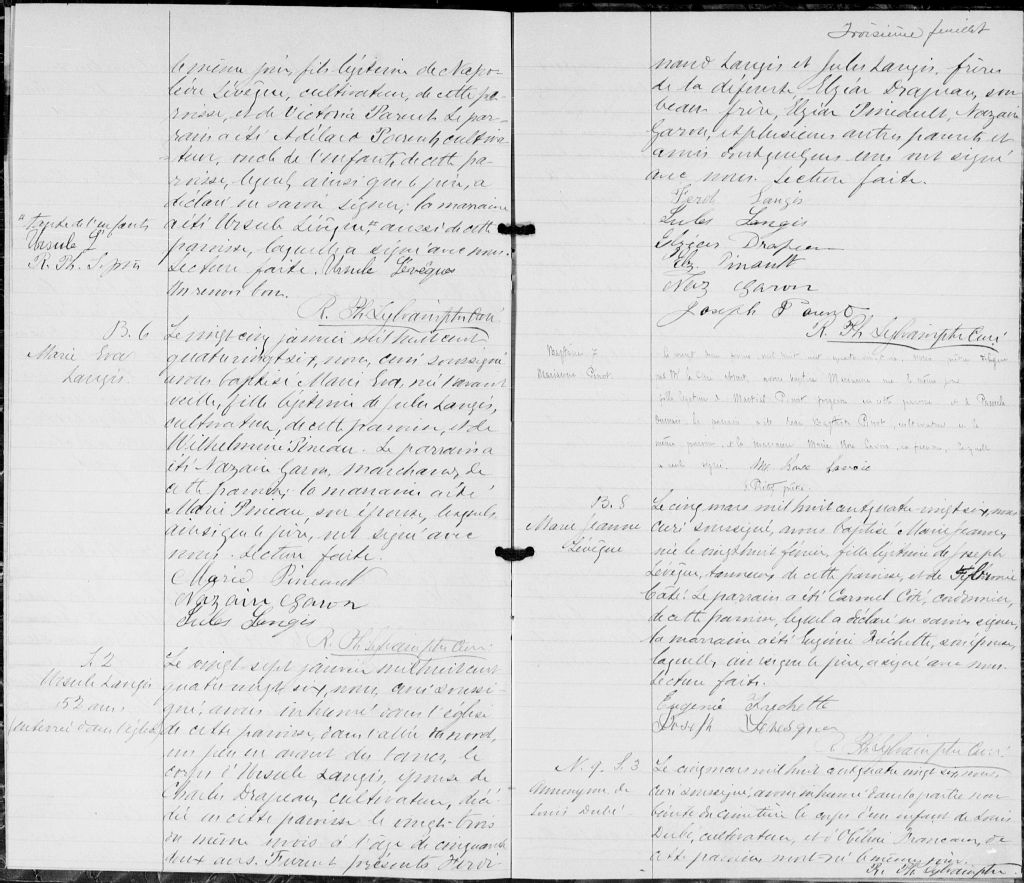 le même jour, fils légitime de Napo-
léon Lévêque, cultivateur, de cette pa-
roisse, et de Victoria Parent. Le par-
rain a été Adélard Parent, cultiva-
teur, oncle de l'enfant, de cette pa-
roisse, lequel, ainsi que le père, a
déclaré ne savoir signer; la marraine
a été Ursule Lévêque # aussi de cette
paroisse, laquelle a signé avec nous.
Lecture faite. Ursule Lévêque
Un renvoi bon.
R. Ph. Sylvain ptre Curé
# tante de l'enfant
Ursule L
R. Ph. S. ptre
B. 6
Marie Eva
Langis.
Le vingt cinq janvier mil huit cent
quatre vingt six, nous, curé soussigné
avons baptisé Marie Eva, née l'avant
veille, fille légitime de Jules Langis,
cultivateur, de cette paroisse, et de
Wilhelmine Pineau. Le parrain a
été Nazaire Garon, marchand, de
cette paroisse; la marraine a été
Marie Pineau son épouse, lesquels
ainsi que le père, ont signé avec
nous. Lecture faite.
Marie Pineault
Nazaire Garon
Jules Langis
R. Ph. Sylvain ptre Curé
S. 2
Ursule Langis
52 ans
(enterrée dans l'église)
Le vingt-sept janvier mil huit cent
quatre vingt six, nous, curé soussi-
gné, avons inhumé dans l'église
de cette paroisse, dans l'allée du nord,
un peu en avant des bancs, le
corps d'Ursule Langis, épouse de
Charles Drapeau, cultivateur, décé-
dée en cette paroisse le vingt-trois
du même mois à l'âge de cinquante
deux ans. Furent présents Ferdi-
Troisième feuillet
nand Langis et Jules Langis, frères
de la défunte, Elzéar Drapeau, son
beau frère, Elzéar Pineault, Nazaire
Garon, et plusieurs autres parents et
amis dont quelques uns ont signé
avec nous. Lecture faite.
Ferd. Langis
Jules Langis
Elzéar Drapeau
Elz. Pinault
Naz Garon
Joseph
R. Ph. Sylvain ptre Curé
Baptême 7
Marianne Pinot
mil huit cent quatre vingt six, nous, prêtre
avons baptisé Marianne née le même jour
fille légitime de Martial Pinot de cette paroisse et de
le parrain a été Baptiste Pinot, cultivateur de la
même paroisse et la marraine Marie Rose Lavoie
a seule signé. M. Rose Lavoie
ptre
B. 8
Marie Jeanne
Lévêque
Le cinq mars mil huit cent quatre vingt six, nous
curé soussigné, avons baptisé Marie Jeanne,
née le vingt huit février, fille légitime de Joseph
Lévêque, tanneur, de cette paroisse, et de
Côté. Le parrain a été Carmel Côté, cordonnier,
de cette paroisse, lequel a déclaré ne savoir signer,
la marraine a été Eugénie Fréchette, son épouse,
laquelle, ainsi que le père, a signé avec nous.
Lecture faite.
Eugénie Frechette
Joseph
R. Ph. Sylvain ptre Curé
N. 9. S. 3
Annonyme de
Louis Dubé
Le cinq mars mil huit cent quatre vingt six, nous
curé soussigné, avons inhumé dans la partie non
bénite du cimetière le corps d'un enfant de Louis
Dubé, cultivateur, et d'Obéline Francoeur, de
cette paroisse, mort-né le même jour.
R. Ph. Sylvain ptre